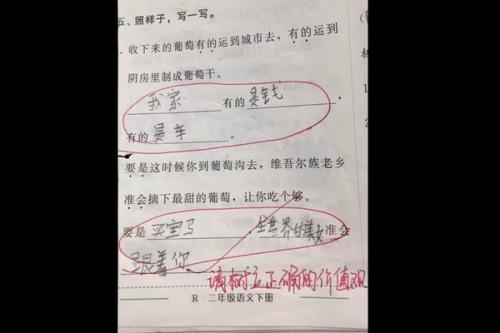 五、照样子,写一写。
收下来的葡萄有的运到城市去,有的运到
阴房里制成葡萄干。
我家 有的是钱,
有的是车。
要是这时候你到葡萄沟去,维吾尔族老乡
准会摘下最甜的葡萄,让你吃个够。
要是买宝马,全世界的美女准会
跟着你。
请树立正确的价值观
R 二年级语文下册